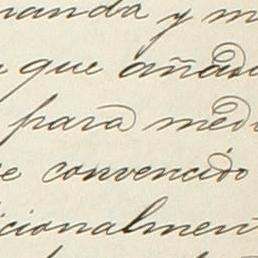 manda y m
que añad
para med
e convencido
icionalmen